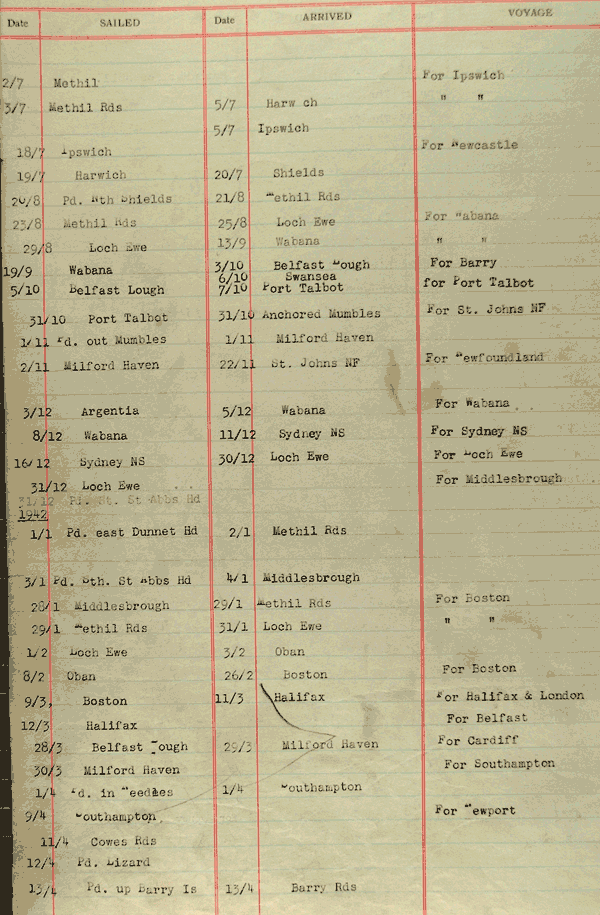 Date SAILED Date ARRIVED VOYAGE
2/7 Methil For Ipswich
3/7 Methil Rds 5/7 Harw ch " "
5/7 Ipswich
18/7 Ipswich For Newcastle
19/7 Harwich 20/7 Shields
20/8 Pd. Nth Shields 21/8 Methil Rds
23/8 Methil Rds 25/8 Loch Ewe For Wabana
29/8 Loch Ewe 13/9 Wabana " "
19/9 Wabana 3/10 Belfast Lough For Barry
6/10 Swansea
5/10 Belfast Lough 7/10 Port Talbot for Port Talbot
31/10 Port Talbot 31/10 Anchored Mumbles For St. Johns NF
1/11 Pd. out Mumbles 1/11 Milford Haven
2/11 Milford Haven 22/11 St. Johns NF For Newfoundland
3/12 Argentia 5/12 Wabana For Wabana
8/12 Wabana 11/12 Sydney NS For Sydney NS
16/12 Sydney NS 30/12 Loch Ewe For Loch Ewe
31/12 Loch Ewe For Middlesbrough
31/12 Pd. St Abbs Hd
1942
1/1 Pd. east Dunnet Hd 2/1 Methil Rds
3/1 Pd. Sth. St Abbs Hd 4/1 Middlesbrough
28/1 Middlesbrough 29/1 Methil Rds For Boston
29/1 Methil Rds 31/1 Loch Ewe " "
1/2 Loch Ewe 3/2 Oban
8/2 Oban 26/2 Boston For Boston
9/3, Boston 11/3 Halifax For Halifax & London
12/3 Halifax For Belfast
28/3 Belfast Lough 29/3 Milford Haven For Cardiff
30/3 Milford Haven For Southampton
1/4 Pd. in Needles 1/4 Southampton
9/4 Southampton For Newport
11/4 Cowes Rds
12/4 Pd. Lizard
13/4 Pd. up Barry Is 13/4 Barry Rds